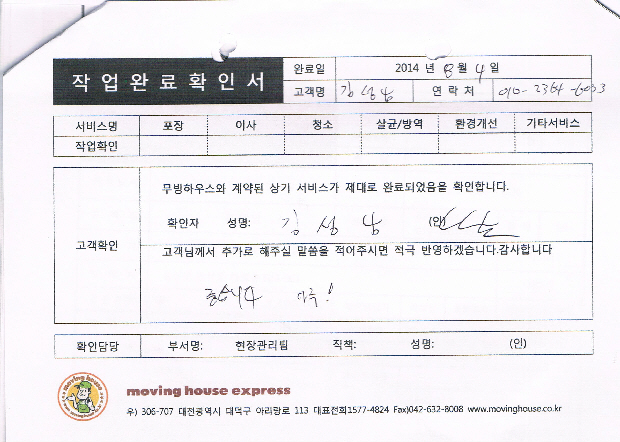 작업완료확인서
완료일 2014 년 8 월 4 일
고객명 김성남 연락처 010-2364-6003
서비스명 포장 이사 청소 살균/방역 환경개선 기타서비스
작업확인
무빙하우스와 계약된 상기 서비스가 제대로 완료되었음을 확인합니다.
고객확인
확인자 성명: 김성남 (인)
고객님께서 추가로 해주실 말씀을 적어주시면 적극 반영하겠습니다.감사합니다
확인담당 부서명: 현장관리팀 직책: 성명: (인)
moving house
moving house express
우) 306-707 대전광역시 대덕구 아리랑로 113 대표전화1577-4824 Fax)042-632-8008 www.movinghouse.co.kr